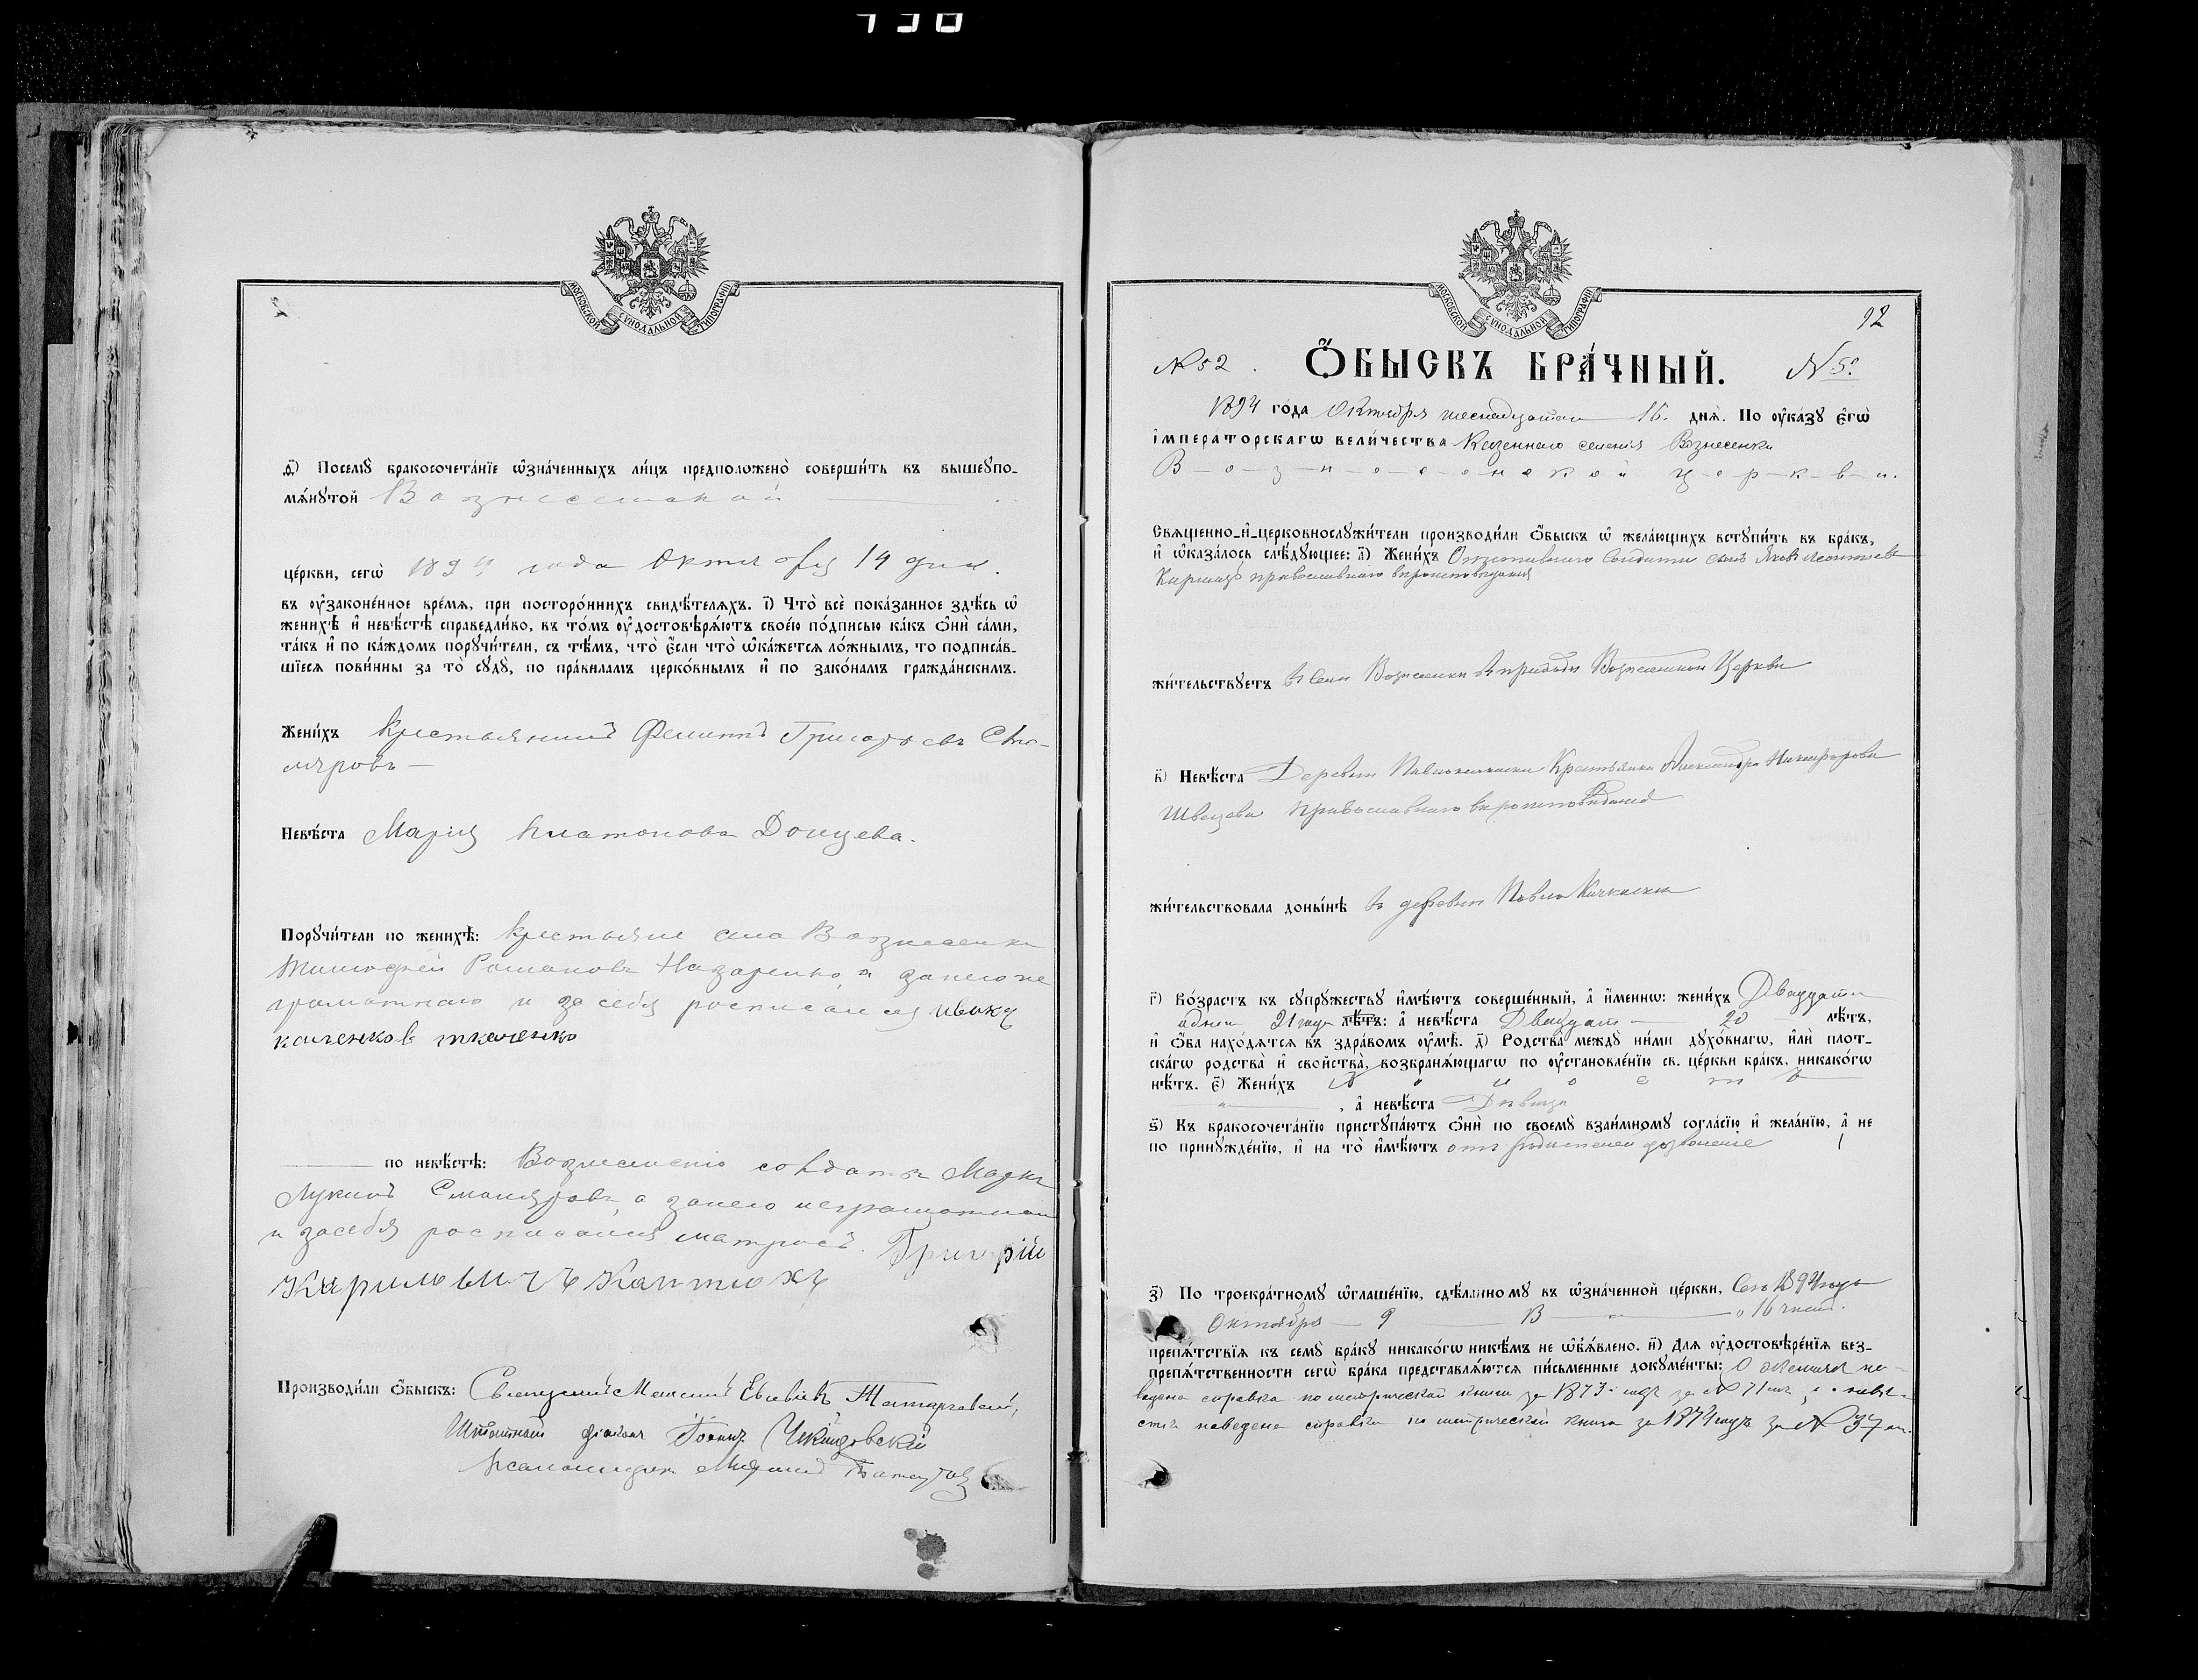 МОСКОВСКОЙ СУНОДАЛЬНОЙ ТИПОГРАФІИ
ѳ҃) Посемꙋ бракосочета́нїе ѡ҆зна́ченныхъ ли́цъ предположено̀ соверши́ть въ вышеꙋпо-
мѧ́нꙋтой Вознесенской
це́ркви, сегѡ̀ 1894 года Октября 19 дня.
въ оу҆законе́нное вре́мѧ, при посторо́ннихъ свидѣ́телѧхъ. і҃) Что̀ всѐ пока́занное здѣ́сь ѡ҆
женихѣ̀ и҆ невѣ́стѣ справедли́во, въ то́мъ оу҆достовѣрѧ́ютъ свое́ю по́дписью ка́къ ѻ҆нѝ са́ми,
та́къ и҆ по ка́ждомъ порꙋчи́тели, съ тѣ́мъ, что̀ є҆́сли что̀ ѡ҆ка́жетсѧ ло́жнымъ, то подписа́в-
шїесѧ пови́нны за то̀ сꙋдꙋ̀, по пра́виламъ церко́внымъ и҆ по зако́намъ гражда́нскимъ.
Жени́хъ Крестьянинъ Филиппъ Григорьевъ Сто-
ляровъ
Невѣ́ста Марія Платонова Донцева.
Порꙋчи́тели по женихѣ̀: Крестьяне села Вознесенки
Тимофей Романовъ Назаренко, а за него не
грамотнаго и за себя росписался
ткаченко
по невѣ́стѣ: Вознесенскій солдатъ Марко
Лукинъ Смоляровъ, а за него неграмотнаго
и за себя росписался матросъ. Григорій
Кириловичъ Каптюхъ
Производи́ли ѻ҆́быскъ: Священникъ
Штатный діаконъ Іоаннъ
Псаломщикъ
МОСКОВСКОЙ СУНОДАЛЬНОЙ ТИПОГРАФІИ
92
№ 52. Ѻ҆́БЫСКЪ БРА́ЧНЫЙ. № 5
1894 го́да Октября шеснадцатаго 16. днѧ̀. По оу҆ка́зꙋ є҆гѡ̀
і҆мпера́торскагѡ вели́чества Казеннаго селенія Вознесенки
В-о-з-н-е-с-е-н-с-к-о-й Ц-е-р-к-в-и.
Свѧще́нно-и҆-церковнослꙋжи́тели производи́ли ѻ҆́быскъ ѡ҆ жела́ющихъ встꙋпи́ть въ бра́къ,
и҆ ѡ҆каза́лось слѣ́дꙋющее: а҃) Жени́хъ Отставнаго Солдата сынъ Яковъ Леонтьевъ
православнаго вѣроисповѣданія
жи́тельствꙋетъ въ селѣ Вознесенки въ приходѣ Вознесенской Церкви
в҃) Невѣ́ста Деревни Крестьянка Александра Никифорова
Швецова православнаго вѣроисповѣданія
жи́тельствовала доны́нѣ въ деревни Кичкаски
г҃) Во́зрастъ къ сꙋпрꙋ́жествꙋ и҆мѣ́ютъ соверше́нный, а҆ и҆́меннѡ: жени́хъ Двадцати
одного 21 года лѣ́тъ: а҆ невѣ́ста Двадцати 20 лѣ́тъ,
и҆ ѻ҆́ба нахо́дѧтсѧ въ здра́вомъ оу҆мѣ̀. д҃) Родства̀ междꙋ̀ ни́ми дꙋхо́внагѡ, и҆лѝ плот-
ска́гѡ родства̀ и҆ свойства̀, возбранѧ́ющагѡ по оу҆становле́нїю св. це́ркви бра́къ, никако́гѡ
нѣ́тъ. є҃) Жени́хъ Х о л о с т ъ
, а҆ невѣ́ста Дѣвица
ѕ҃) Къ бракосочета́нїю пристꙋпа́ютъ ѻ҆нѝ по своемꙋ̀ взаи́мномꙋ согла́сїю и҆ жела́нїю, а҆ не
по принꙋжде́нїю, и҆ на то̀ и҆мѣ́ютъ отъ родителей дозволеніе
з҃) По троекра́тномꙋ ѡ҆глаше́нїю, сдѣ́ланномꙋ въ ѡ҆зна́ченной це́ркви, Сего 1894 года
Октября 9 16 числ.
препѧ́тствїѧ къ семꙋ̀ бра́кꙋ никако́гѡ никѣ́мъ не ѡ҆б̾ѧ́влено. и҃) Длѧ оу҆достовѣре́нїѧ без-
препѧ́тственности сегѡ̀ бра́ка представлѧ́ютсѧ пи́сьменные докꙋме́нты: О женихѣ на-
ведена справка по метрической книги за 1873 годъ за № 71 мъ, а о невѣ-
стѣ наведена справка по метрической книги за 1874 годъ за № 37 мъ.